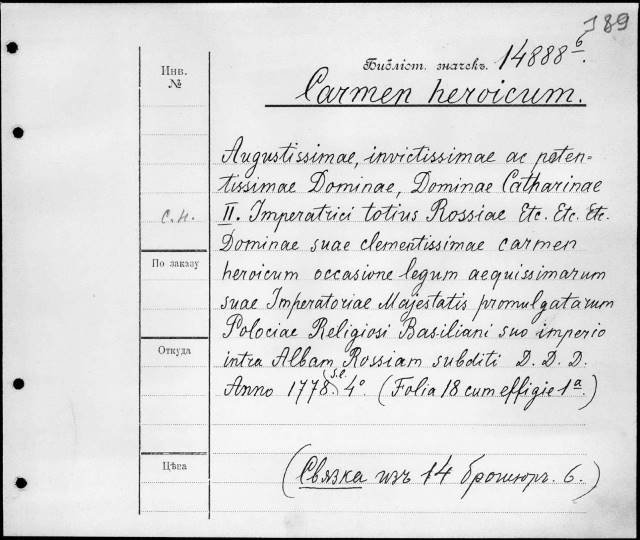 189
Библіот. значекъ. 14888 6.
Инв.
№
Carmen heroicum.
Augustissimae, invictissimae ac poten=
tissimae Dominae, Dominae Catharinae
с.н. II. Imperatrici totius Rossiae Etc. Etc. Etc.
Dominae suae clementissimae carmen
По заказу
heroicum occasione legum aequissimarum
suae Imperatoriae Majestatis promulgatarum
Polociae Religiosi Basiliani suo imperio
Откуда
intra Albam Rossiam subditi D. D. D.
s.l.
Anno 1778. 4° (Folia 18 cum effigie 1a.)
Цѣна
(Связка изъ 14 брошюръ. 6.)